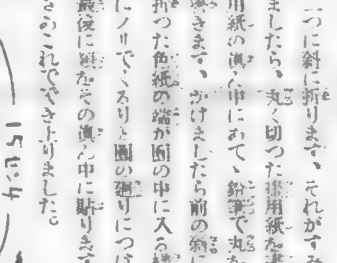 二つに斜に折ります、それがすみ
ましたら、丸く切つた画用紙を
用紙の真ん中にあて、鉛筆で丸を
きます、かけましたら前の斜に
折つた色紙の端が圓の中に入る様
にノリでくるりと圓の廻りにつけ
最後に をその真ん中に貼ります
さあこれでできよりました。